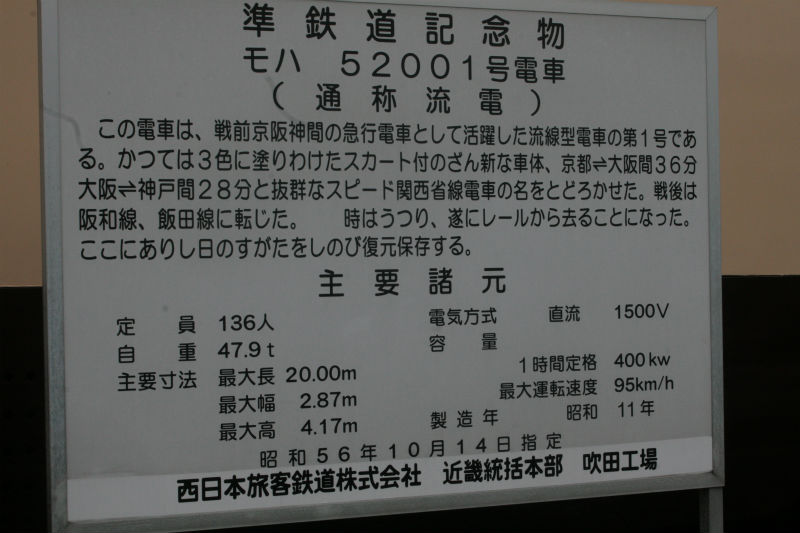 準鉄道記念物
モハ ５２００１号電車
（ 通 称 流 電 ）
この電車は、戦前京阪神間の急行電車として活躍した流線型電車の第１号であ
る。かつては３色に塗りわけたスカート付のざん新な車体、京都⇌大阪間３６分
大阪⇌神戸間２８分と抜群なスピード関西省線電車の名をとどろかせた。戦後は
阪和線、飯田線に転じた。 時はうつり、遂にレールから去ることになった。
ここにありし日のすがたをしのび復元保存する。
主 要 諸 元
定 員 136人 電気方式 直流 1500V
自 重 47.9ｔ 容 量
主要寸法 最大長 20.00m １時間定格 400kw
最大幅 2.87m 最大運転速度 95km/h
最大高 4.17m 製造年 昭和 11年
昭和５６年１０月１４日指定
西日本旅客鉄道株式会社 近畿統括本部 吹田工場